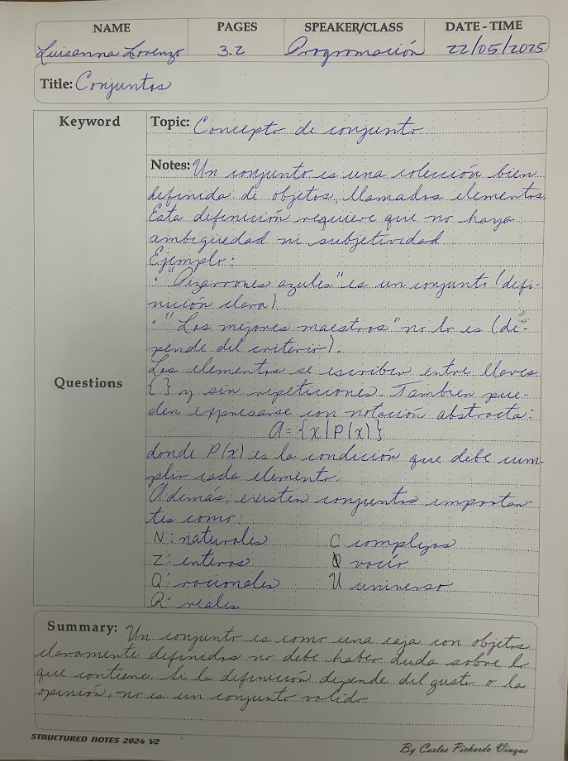 NAME PAGES SPEAKER/CLASS DATE - TIME
Luisanna Lorenzo 3.2 Programación 22/05/2025
Title: Conjuntos
Keyword
Topic: Concepto de conjunto
Notes: Un conjunto es una colección bien
definida de objetos, llamados elementos.
Esta definición requiere que no haya
ambigüedad ni subjetividad
Ejemplo:
· "Pizarrones azules" es un conjunto (defi-
nición clara).
· "Los mejores maestros" no lo es (de-
pende del criterio).
Los elementos se escriben entre llaves
Questions
{ } y sin repeticiones. Tambien pue-
den expresarse con notación abstracta:
A = {x | P(x)}
donde P(x) es la condición que debe cum-
plir cada elemento.
Además, existen conjuntos importan
tes como:
N: naturales C complejos
Z: enteros Ø vacío
Q: racionales U universo
R: reales
Summary: Un conjunto es como una caja con objetos
claramente definidos no debe haber duda sobre lo
que contiene. Si la definición depende del gusto o la
opinión, no es un conjunto valido
STRUCTURED NOTES 2024 V2
By Carlos Pichardo Vinque